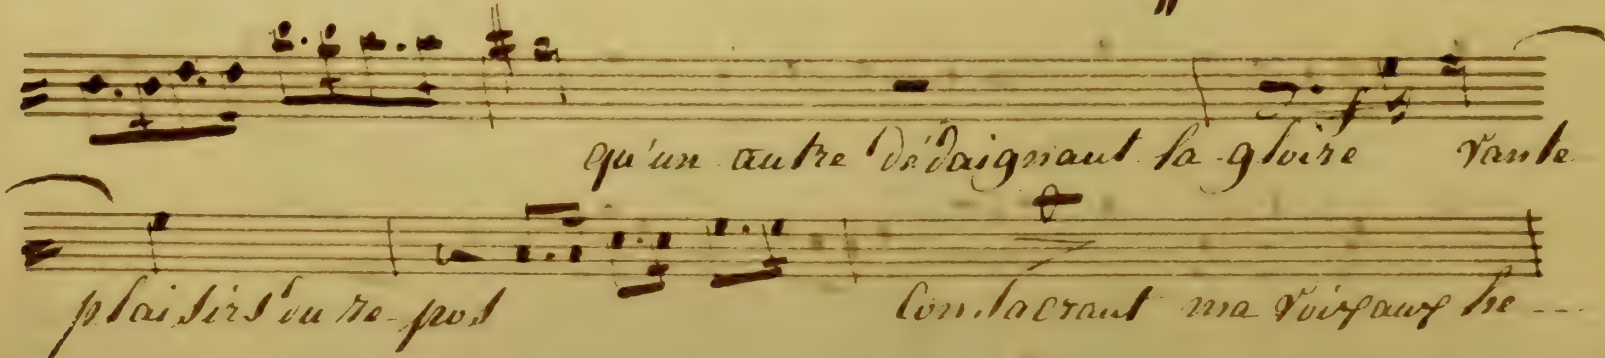 qu'un autre dédaignant la gloire vante
plaisirs du re-pos Consacrant ma voix aux hé---